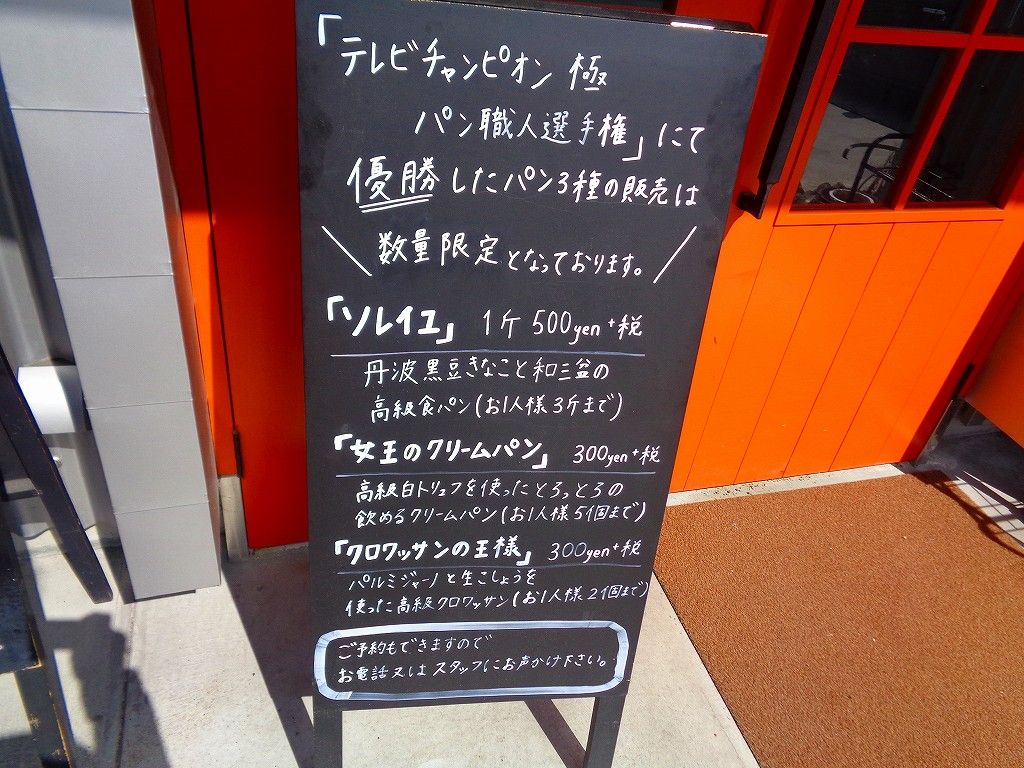 「テレビチャンピオン 極
パン職人選手権」にて
優勝したパン3種の販売は
＼数量限定となっております。／
「ソレイユ」 1斤 500yen+税
丹波黒豆きなこと和三盆の
高級食パン(お1人様3斤まで)
「女王のクリームパン」 300yen+税
高級白トリュフを使ったとろっとろの
飲めるクリームパン(お1人様5個まで)
「クロワッサンの王様」 300yen+税
パルミジャーノと生こしょうを
使った高級クロワッサン(お1人様2個まで)
ご予約もできますので
お電話又はスタッフにお声かけ下さい。